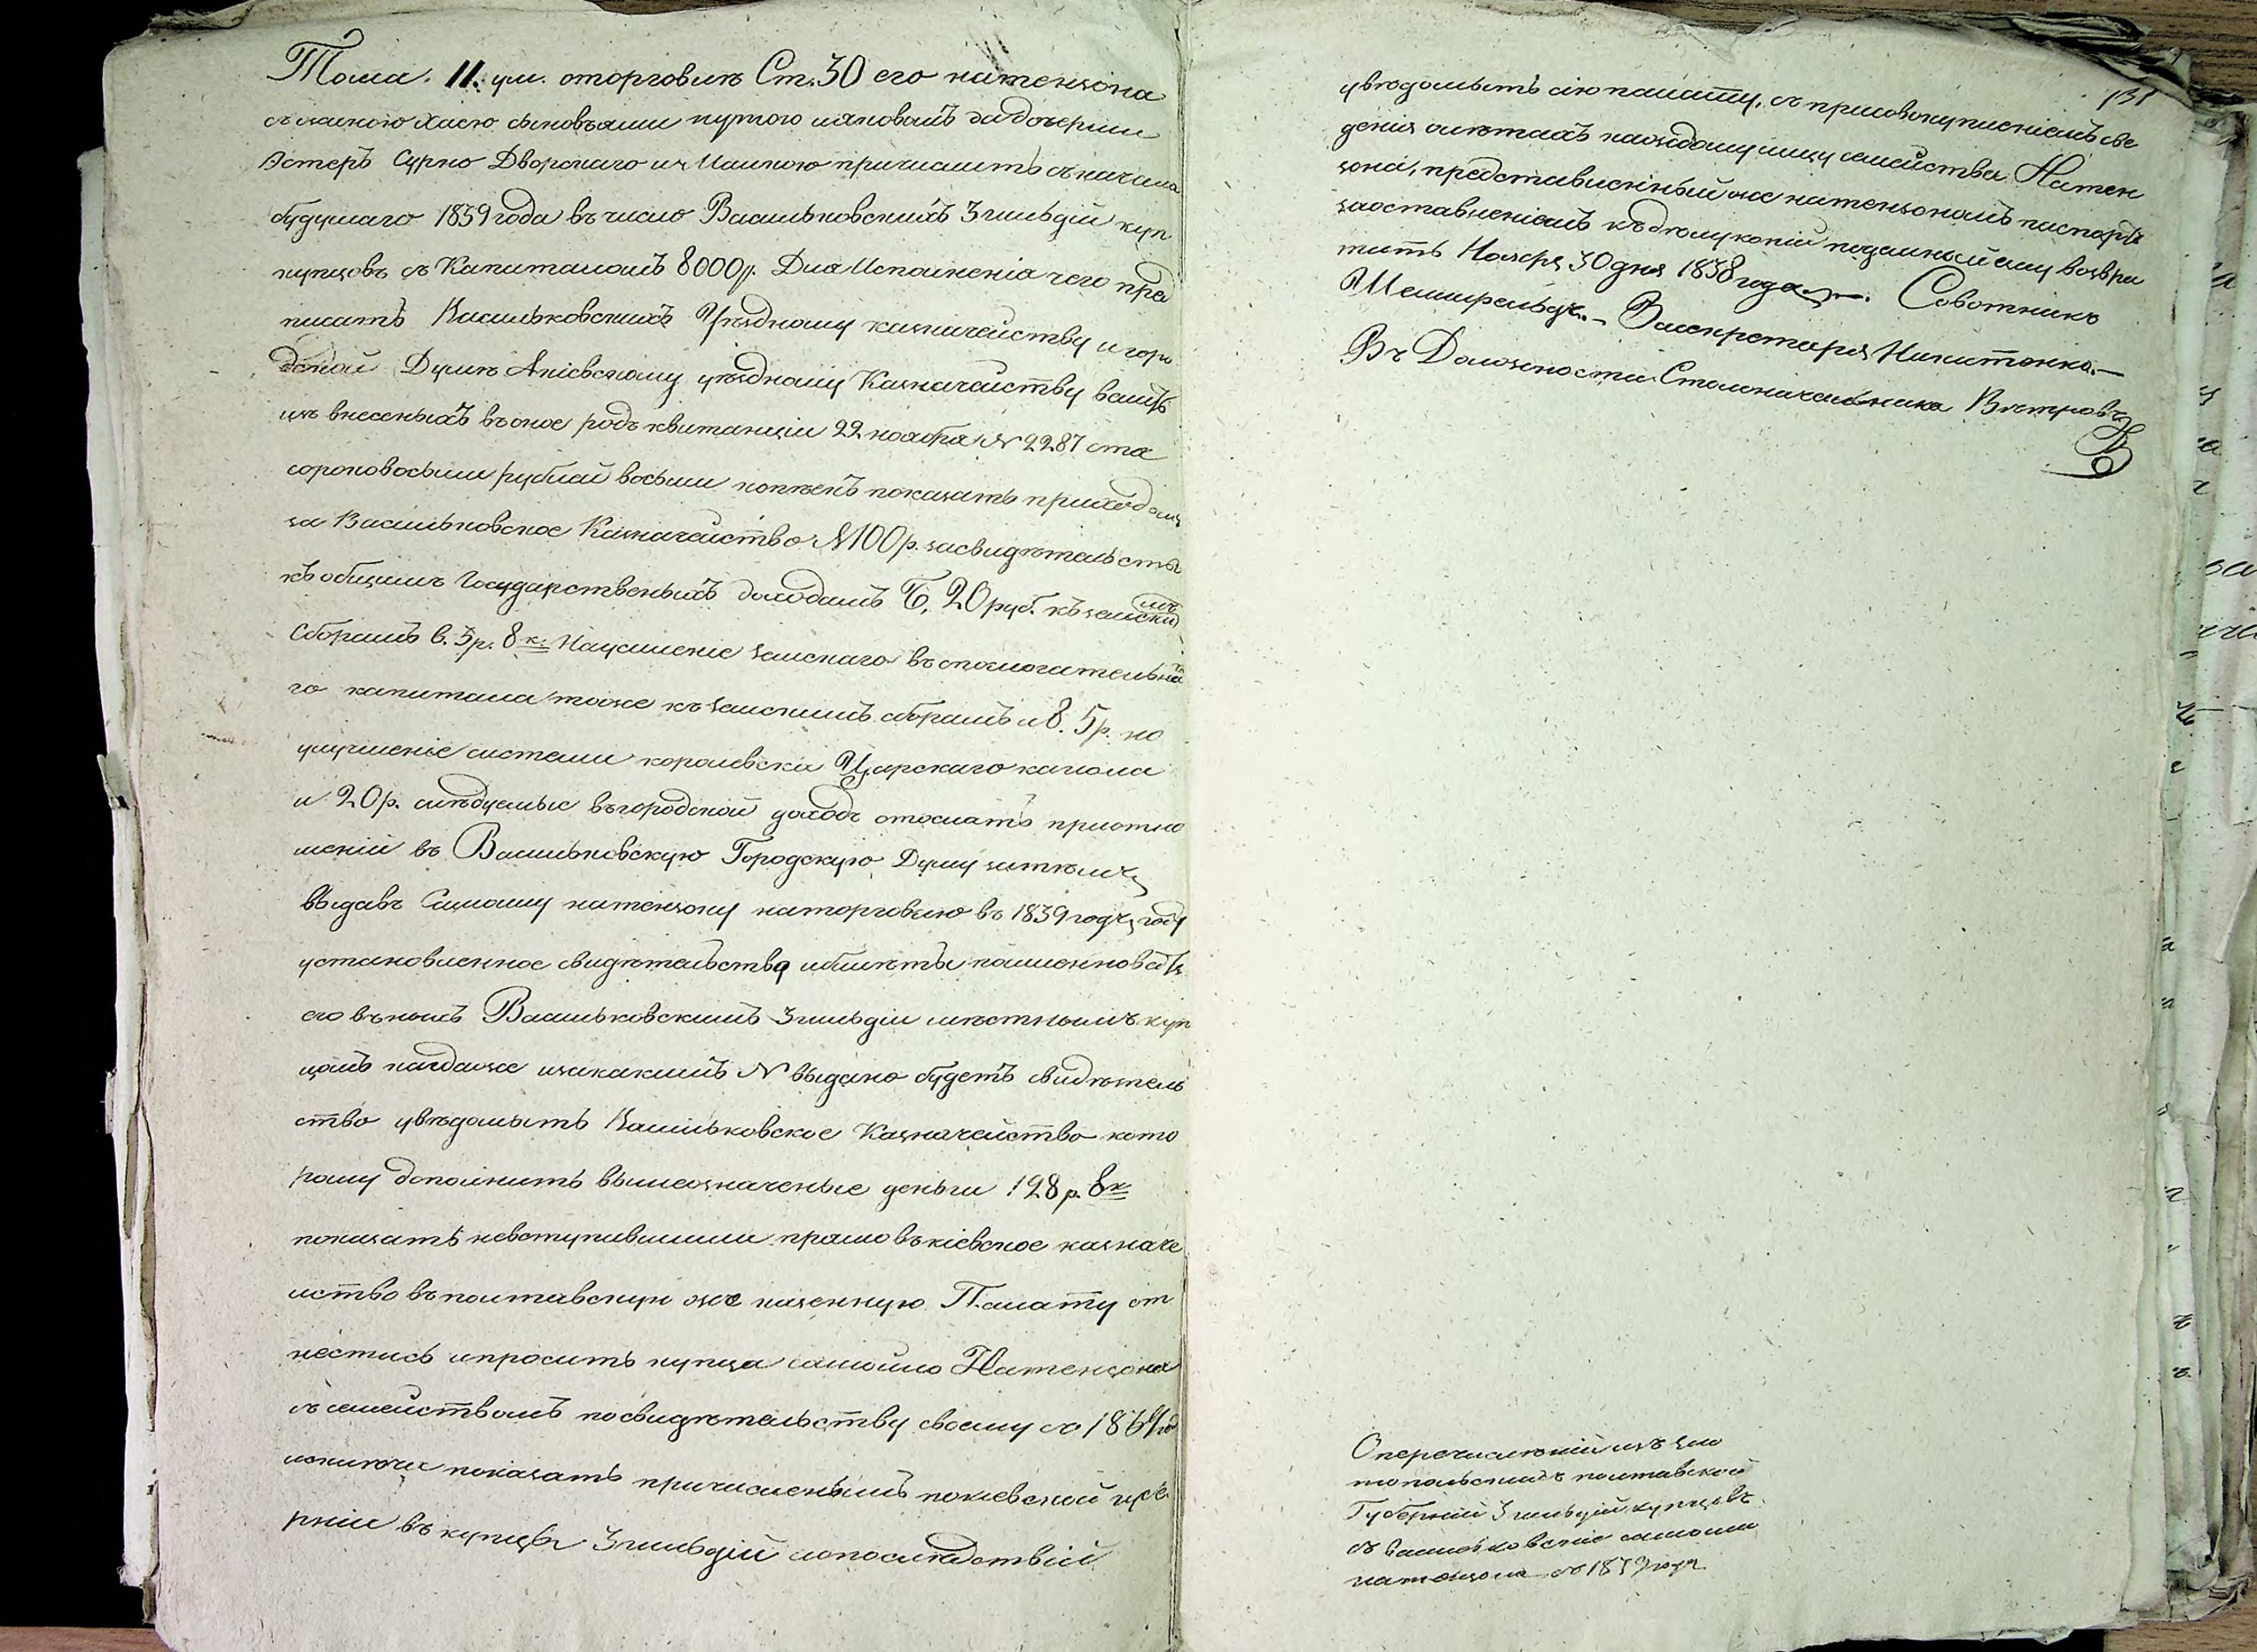 Тома. 11. ум. оторговлѣ Ст. 30 его натензона
съ женою Хаею сыновьями путою и яновымъ да дочерми
Эстеръ Сурно Дворскаго из Малкою причислить съ начала
будущаго 1839 года въ число Васильковскихъ 3 гильдіи куп
купцовъ съ Капиталомъ 8000 р. Для Исполненія чего пред
писать Васильковскихъ Уѣздному казначейству и горо
дской Думѣ Акіевскому уѣздному Казначейству вашъ
изъ внесенныхъ въ оное родъ квитанціи 22 ноября № 2287 ста
сороковосьми рублей восьми копѣекъ показать приходомъ
за Васильковское Казначейство А 100 р. засвидѣтельство
къ общимъ Государственныхъ доходамъ Б, 20 руб. къ земски
мъ
Сборамъ в. 3 р. 8 к. Науселеніе земскаго въспомогательна
го капитала тоже къ земскимъ сборамъ и 8. 5 р. на
улучшеніе системы королевски Царскаго канала
и 20 р. слѣдуемые въ городской доходъ отослать приотно
шеніи въ Васильковскую Городскую Думу затѣмъ
выдавъ Самому натензону на торговлю въ 1839 годъ году
установленное свидѣтельство и билеты поименовать
его въ номъ Васильковскимъ 3 гильдіи мѣстнымъ куп
цомъ когда же изакакимъ № выдано будетъ свидѣтель
ство увѣдомить Васильковское Казначейство кото
рому дополнить вышеозначеные деньги 128 р. 8 к
показать невступившими прямо въ кіевское казначе
йство въ полтавскую же казенную Палату от
нестись и просить купца самойло Натензона
съ семействомъ по свидѣтельству своему съ 1839 год
исключа показать причисленымъ по кіевской губе
рніи въ купцы 3 гильдіи и о послѣдствіи
131
увѣдомить сію палату, съ присовокупленіемъ све
денія о лѣтахъ каждому лицу семейства Натен
зона, представленный же натензономъ паспортъ
заоставленіемъ къ дѣлу копіи подлинный ему возвра
тить Ноября 30 дня 1838 года. Совѣтникъ
Засекретаря Никитенко.
Въ Должности Столоначальника Вѣтровъ
О перечисленіи изъ зол
топольскихъ полтавской
Губерніи 3 гильдіи купцовъ
въ васильковскіе самоила
натензона съ 1839 года